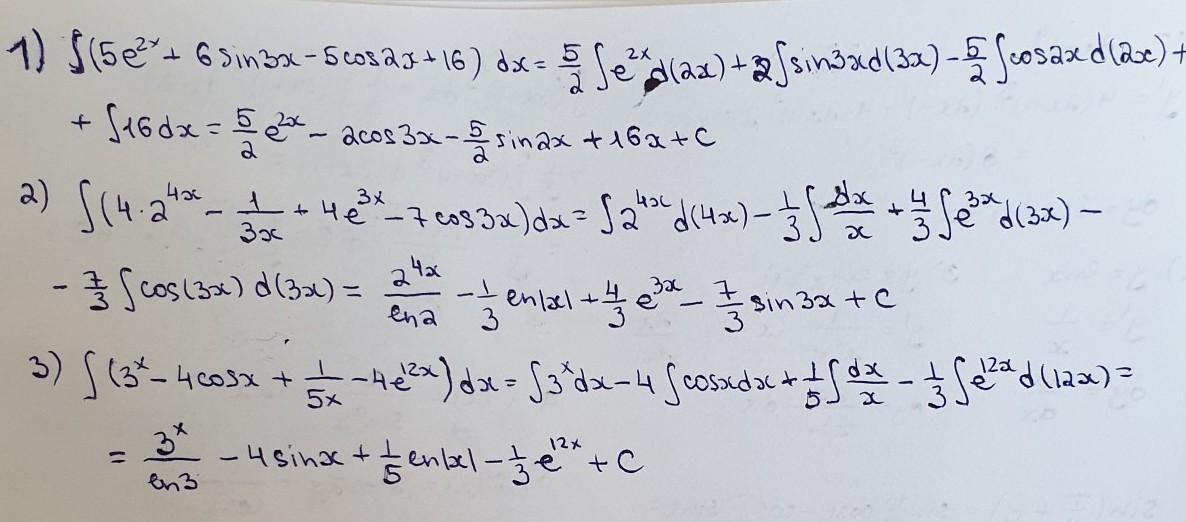 1) ∫(5e^{2x} + 6 sin3x - 5cos2x + 16) dx = 5/2 ∫e^{2x} d(2x) + 2∫sin3x d(3x) - 5/2 ∫cos2x d(2x) +
+ ∫16 dx = 5/2 e^{2x} - 2cos3x - 5/2 sin2x + 16x + C
2) ∫(4·2^{4x} - 1/3x + 4e^{3x} - 7cos3x) dx = ∫2^{4x} d(4x) - 1/3 ∫ dx/x + 4/3 ∫e^{3x} d(3x) -
- 7/3 ∫cos(3x) d(3x) = 2^{4x}/ln2 - 1/3 ln|x| + 4/3 e^{3x} - 7/3 sin3x + C
3) ∫(3^x - 4cosx + 1/5x - 4e^{12x}) dx = ∫3^x dx - 4∫cosx dx + 1/5 ∫ dx/x - 1/3 ∫e^{12x} d(12x) =
= 3^x/ln3 - 4sinx + 1/5 ln|x| - 1/3 e^{12x} + C